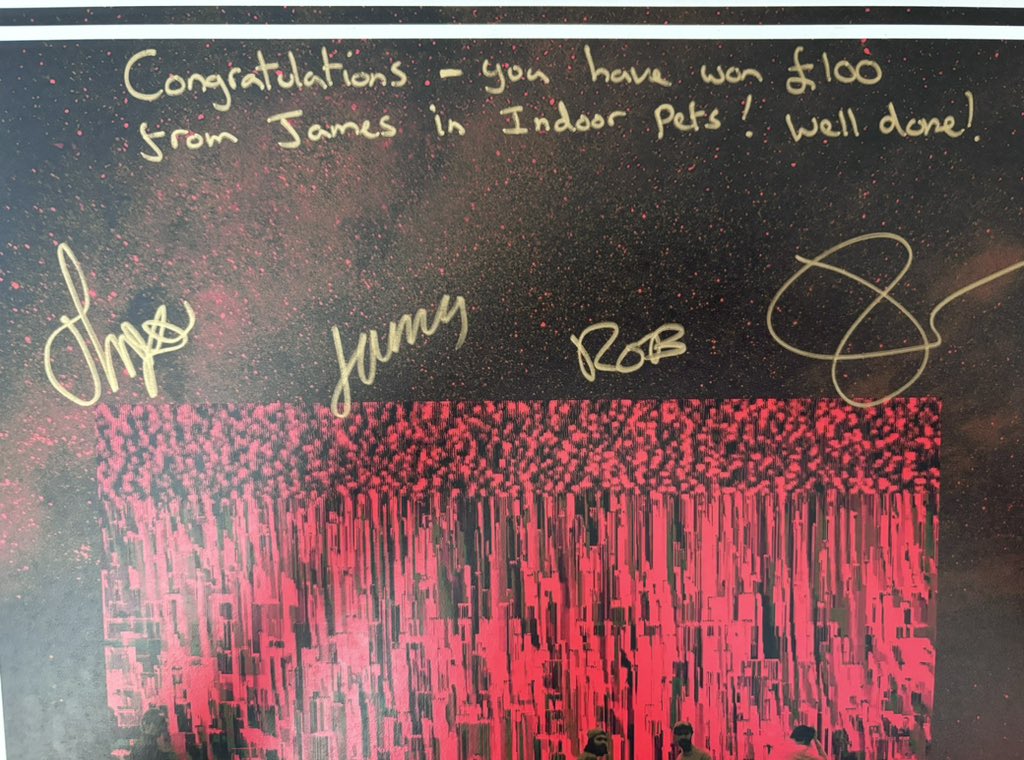 Congratulations - you have won £100
from James in Indoor Pets! Well done!
James
ROB